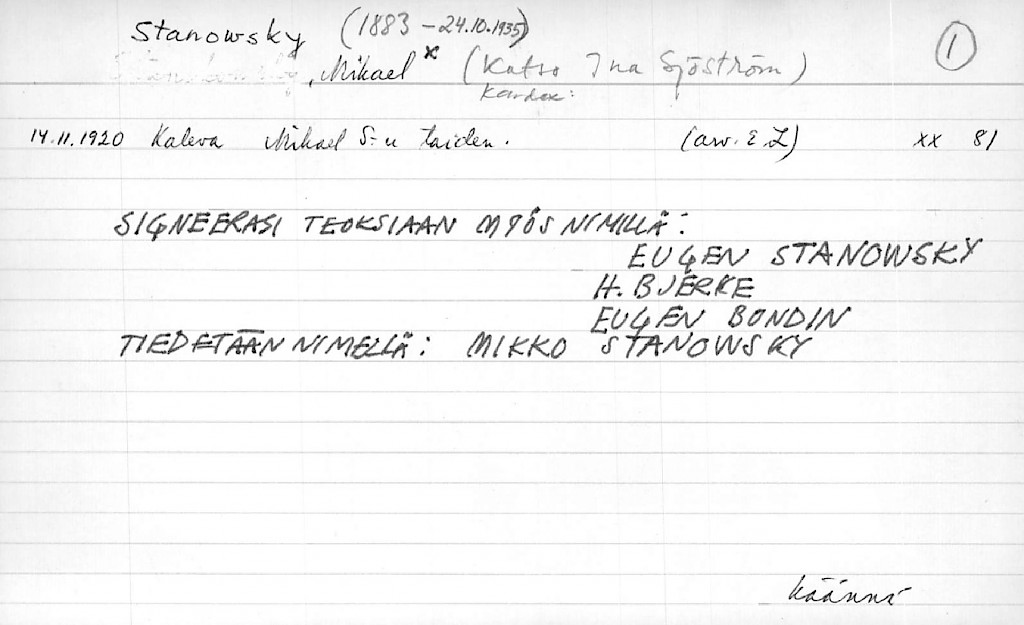 Stanowsky (1883 – 24.10.1935)
, Mikael x (Katso Ina Sjöström) 1
14.11.1920 Kaleva Mikael S:n taiden. (arv. E L) xx 81
SIGNEERASI TEOKSIAAN MYÖS NIMILLÄ:
EUGEN STANOWSKY
H. BJERKE
EUGEN BONDIN
TIEDETÄÄN NIMELLÄ: MIKKO STANOWSKY
käännä